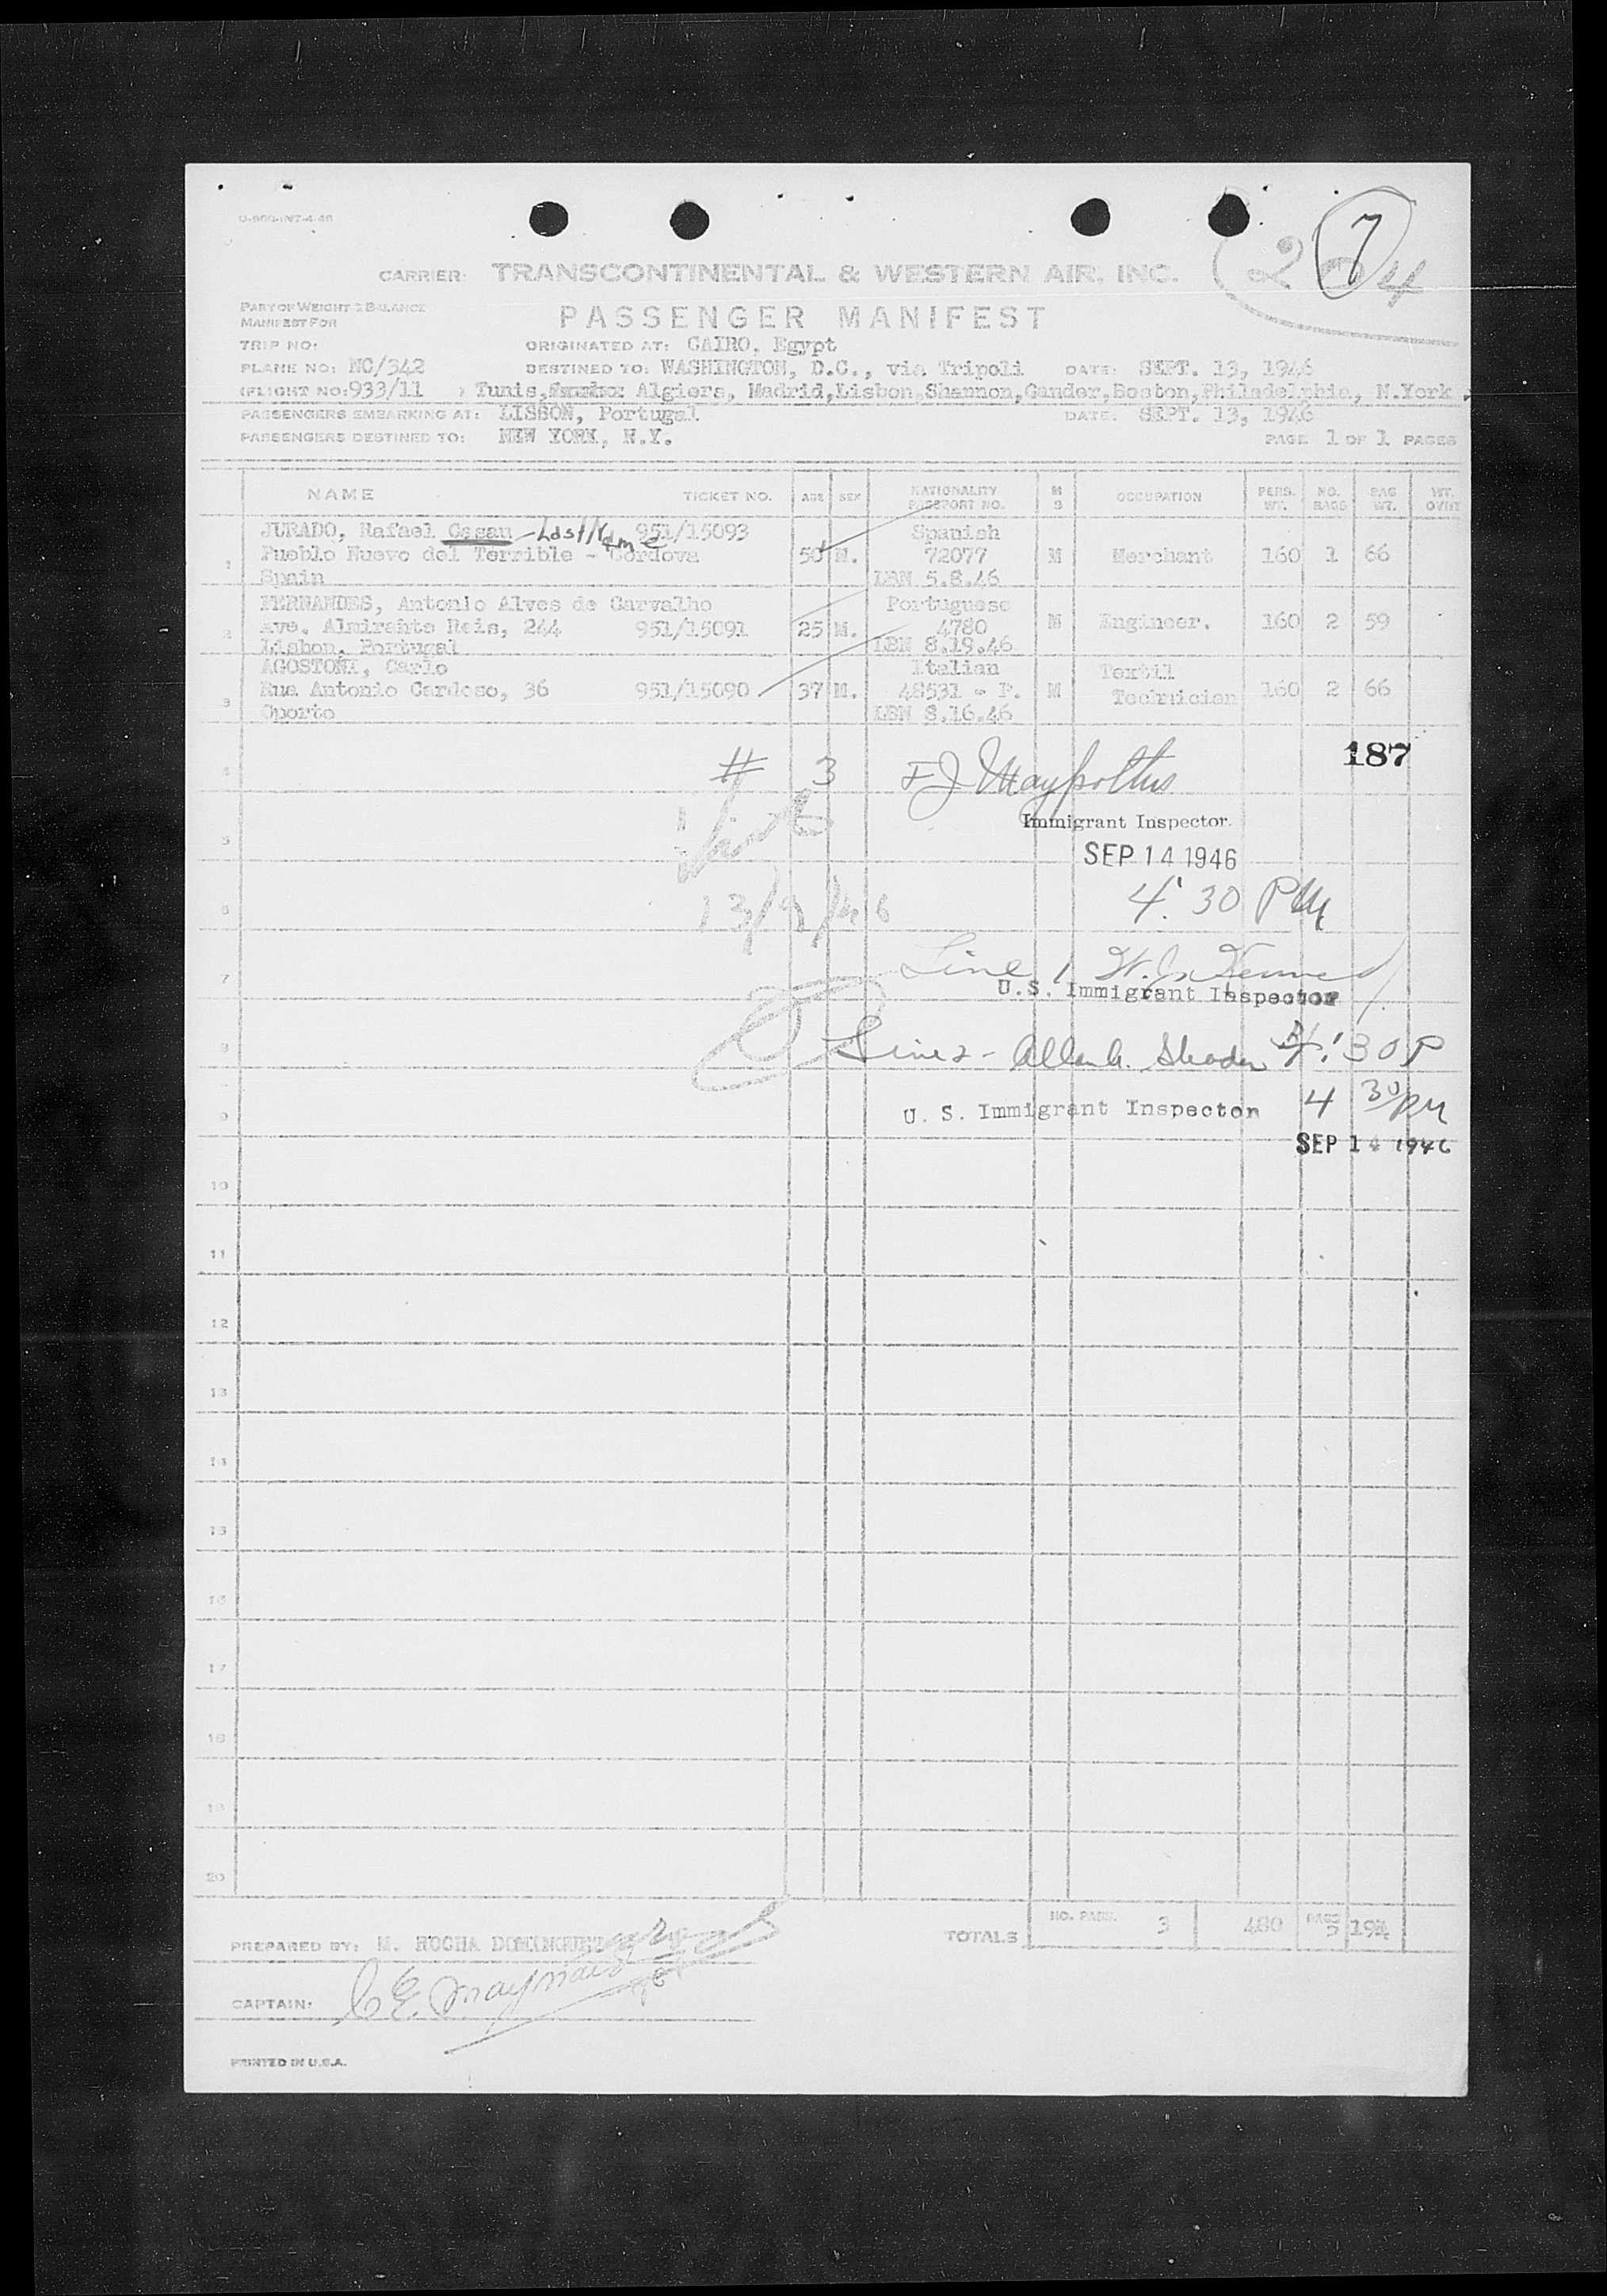 U-900-INT-4-46
7
204
CARRIER: TRANSCONTINENTAL & WESTERN AIR, INC.
PART OF WEIGHT & BALANCE
MANIFEST FOR
PASSENGER MANIFEST
TRIP NO: ORIGINATED AT: CAIRO, Egypt
PLANE NO: NC/342 DESTINED TO: WASHINGTON, D.C., via Tripoli DATE: SEPT. 13, 1946
(FLIGHT NO: 933/11 ) Tunis, Algiers, Madrid,Lisbon,Shannon,Gander,Boston,Philadelphia, N.York
PASSENGERS EMBARKING AT: LISBON, Portugal DATE: SEPT. 13, 1946
PASSENGERS DESTINED TO: NEW YORK, N.Y. PAGE 1 OF 1 PAGES
NAME TICKET NO. AGE SEX NATIONALITY PASSPORT NO. M S OCCUPATION PERS. WT. NO. BAGS BAG WT. WT. OVER
JURADO, Rafael Casau -Last Name 951/15093 Spanish
1 Pueblo Nuevo del Terrible - Cordova 50 M. 72077 M Merchant 160 1 66
Spain LBN 5.8.46
FERNANDES, Antonio Alves de Carvalho Portuguese
2 Ave. Almirante Reis, 244 951/15091 25 M. 4780 M Engineer. 160 2 59
Lisbon, Portugal LBN 8.19.46
AGOSTONI, Carlo Italian Textil
3 Rua Antonio Cardoso, 36 951/15090 37 M. 48531 - P. M Technician 160 2 66
Oporto LBN 8.16.46
187
4 # 3 F J
Immigrant Inspector.
5
SEP 14 1946
6 13/9/46 4:30 PM
7 Line 1 W. J.
U.S. Immigrant Inspector
8 Line 2 - Allan 4:30 P
9 U. S. Immigrant Inspector 4 30 pm
SEP 14 1946
10
11
12
13
14
15
16
17
18
19
20
PREPARED BY: M. ROCHA TOTALS NO. PASS. 3 480 BAGS 5 191
CAPTAIN: C E Maynard
PRINTED IN U.S.A.